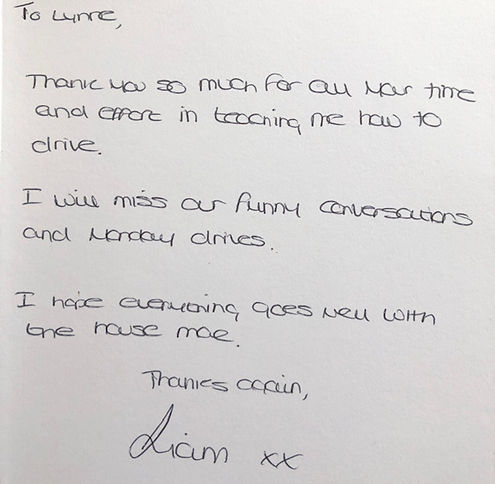 To Lynne,
Thank you so much for all your time
and effort in teaching me how to
drive.
I will miss our funny conversations
and Monday drives.
I hope everything goes well with
the house move.
Thanks again,
Liam xx